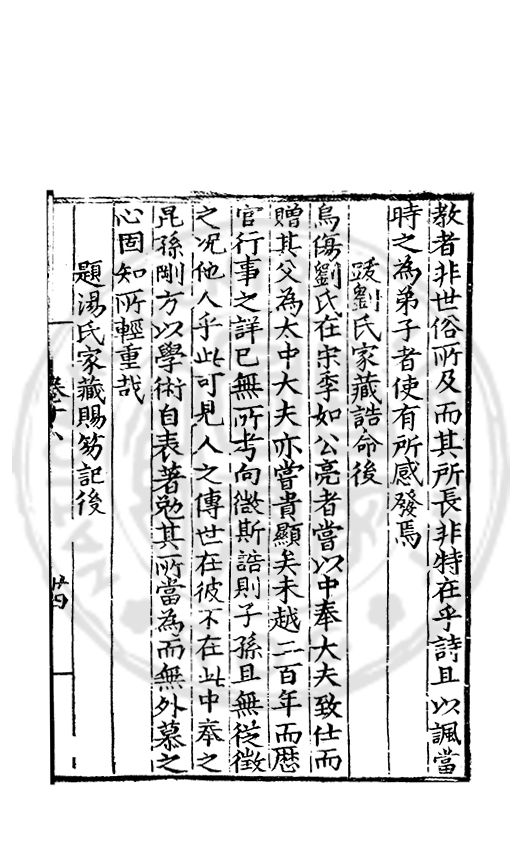 教者非世俗所及而其所長非特在乎詩且以諷當
時之為弟子者使有所感發焉
跋劉氏家藏誥命後
烏傷劉氏在宋季如公亮者嘗以中奉大夫致仕而
贈其父為太中大夫亦嘗貴顯矣未越二百年而歷
官行事之詳已無所考向微斯誥則子孫且無從徵
之况他人乎此可見人之傳世在彼不在此中奉之
昆孫剛方以學術自表著勉其所當為而無外慕之
心固知所輕重哉
題湯氏家藏賜笏記後
卷十八
廿四